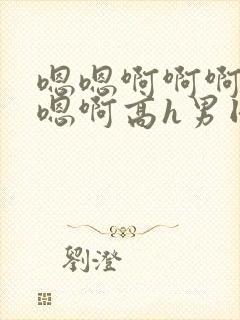 嗯嗯啊啊啊
嗯啊高h男
劉澄